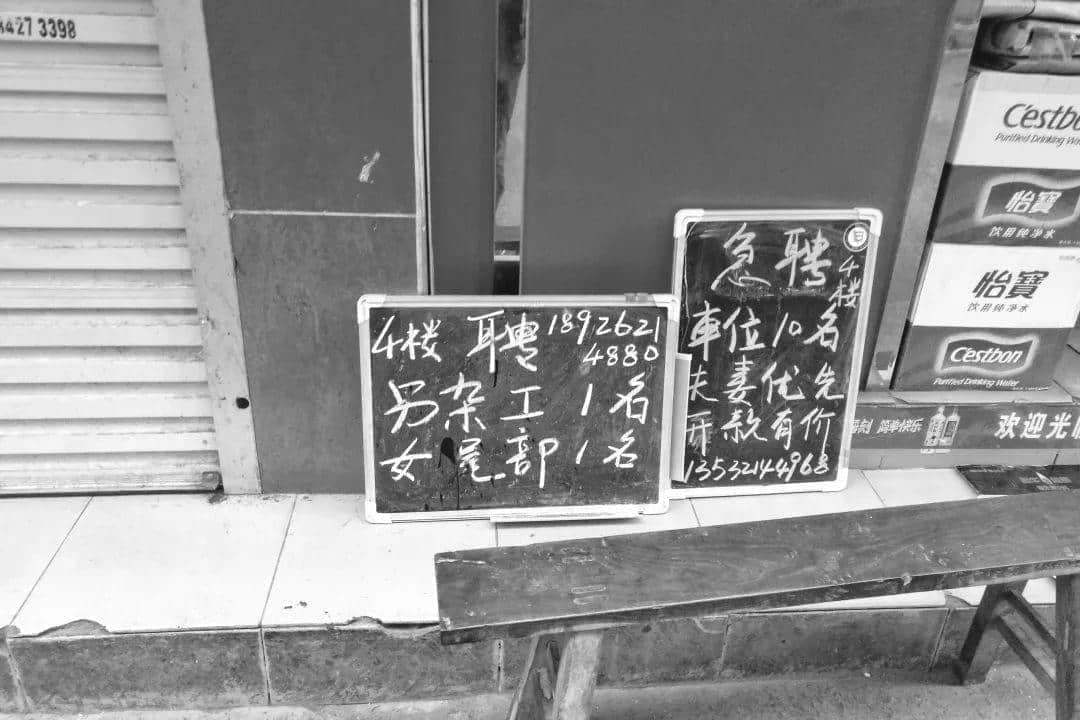 427 3398
4楼 聘 1892621
4880
男杂工 1名
女尾部 1名
急聘
4楼
車位10名
夫妻优先
开款有价
13532144968
C'estbon
Purified Drinking Water
怡寶
饮用纯净水
怡寶
饮用纯净水
C'estbon
Purified Drinking Water
简单快乐
欢迎光临